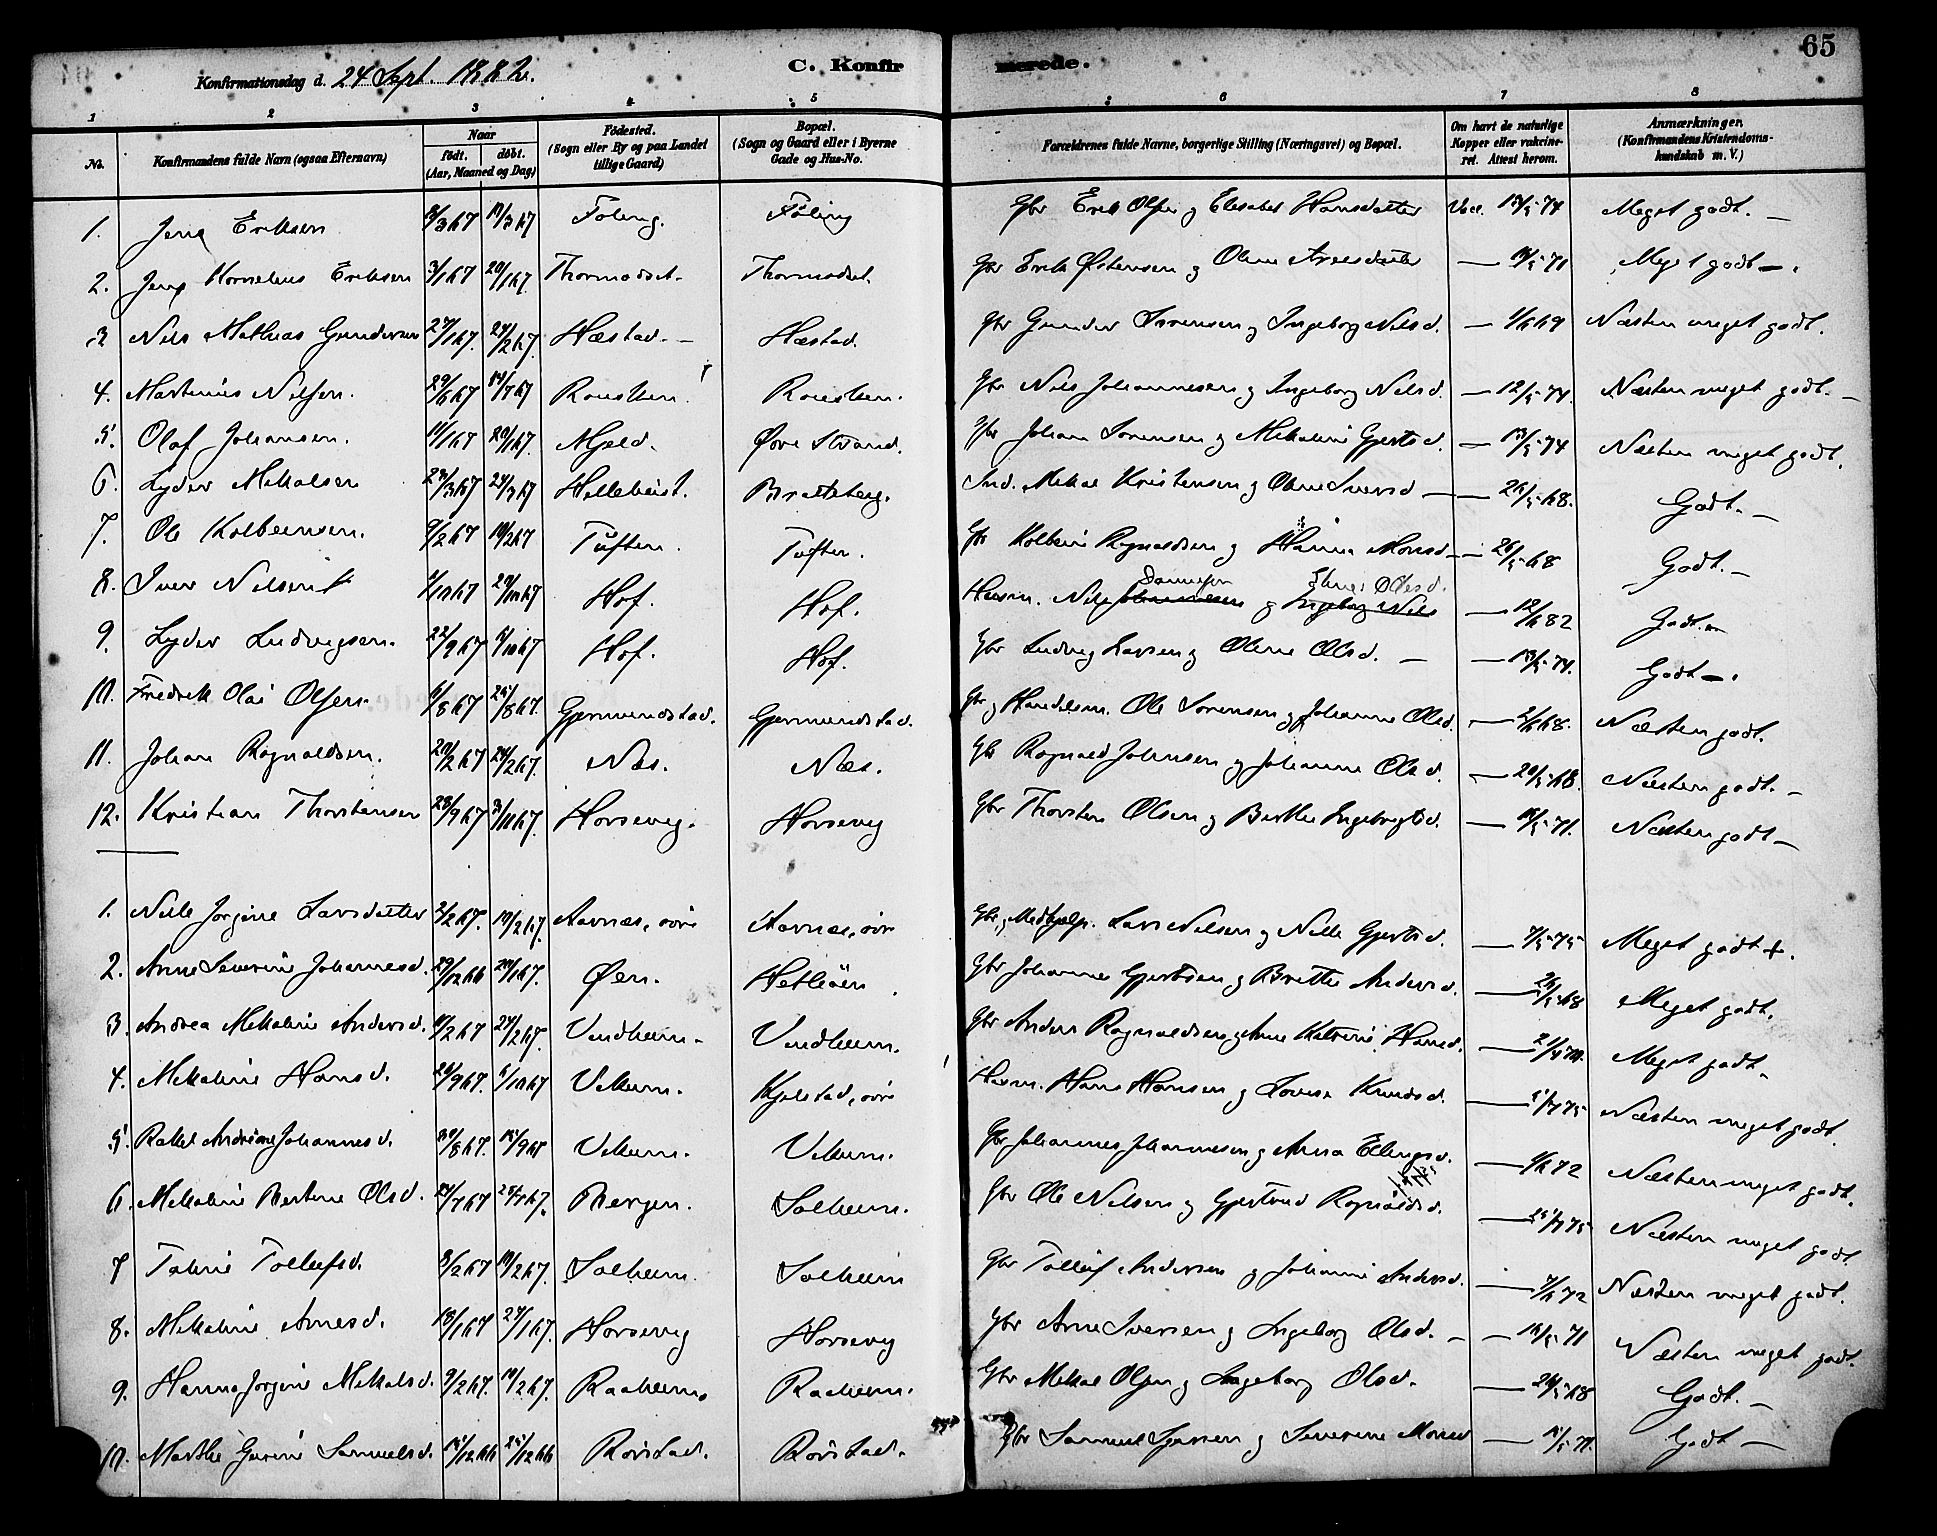 65
Konfirmationsdag d. 24 Sept. 1882.
C. Konfirmerede.
1 2 3 4 5 6 7 8
No.
Konfirmandens fulde Navn (ogsaa Efternavn)
Naar født. døbt. (Aar, Maaned og Dag)
Fødested. (Sogn eller By og paa Landet tillige Gaard)
Bopæl. (Sogn og Gaard eller i Byerne Gade og Hus-No.
Forældrenes fulde Navne, borgerlige Stilling (Næringsvei) og Bopæl.
Om havt de naturlige Kopper eller vakcineret. Attest herom.
Anmærkninger. (Konfirmandens Kristendomskundskab m. V.)
1. Jens Eriksen 17/3 67 Føling Føling Gbr Erik Olsen og Elisabet Hansdatter Vac. Meget godt.
2. Jens Kornelius Eriksen 3/1 67 20/1 67 Thormodset Thormodset Gbr Erik Østensen og Oline Arnesdatter Meget godt
3 Nils Mathias Gundersen 27/1 67. 24/2 67. Hæstad. Hæstad. Gbr Gunder Sørensen og Ingeborg Nilsd. Næsten meget godt.
4. Martinus Nilsen. 29/6 67 14/7 67 Gbr Nils Johannesen og Ingeborg Nilsd. 12/5 74. Næsten meget godt.
5. Olaf Johansen. 20/1 67. Mjeld. Øvre Strand. Gbr Johan Sørensen og Mikaline Gjertsd. 13/5 74 Næsten meget godt.
6. Lyder Mikalsen 24/3 67 Helleheist. Bratteberg. Ind. Mikal Kristensen og Oline Iversd 26/5 68. Godt.
7. Ole Kolbeensen. 9/2 67 Tuften. Tuften. Gbr Kolbein Rognaldsen og Hanna Monsd 26/5 68 Godt.
8. Iver Nilsen Hof. Hof. Husm. Nils Johannesen og Ingeborg Nils Olsd. 12/6 82 Godt.
9. Lyder Ludvigsen. 22/9 67 6/10 67 Hof. Hof. Gbr Ludvig Larsen og Oline Olsd. 13/5 74. Godt.
10. Fredrik Olai Olsen. 6/8 67 25/8 67. Gjermundstad. Gjermundstad. Gbr og Handelsm. Ole Sørensen og Johanne Olsd. 2/6 68. Næsten godt.
11. Johan Rognaldsen. 24/2 67. Næs. Næs. Gbr Rognald Johnsen og Johanne Olsd. Næsten godt.
12. Kristian Thorstensen 28/9 67 Horsevig. Horsevig Gbr Thorsten Olsen og Berthe Ingebrigtsd. Næsten godt
1. Nille Jorgine Larsdatter 2/2 67. Aarnæs, øvre Aarnæs, øvre Gbr. og Medhjelp. Lars Nilsen og Nille Gjertsd. 7/5 75 Meget godt +.
2. Anne Severine Johannesd. 29/12 66 20/1 67. Øen. Hetleöen Gbr Johannes Gjertsen og Britte Andersd. 26/5 68 Meget godt.
3. Andrea Mikaline Andersd. 24/2 67. Vindheim. Vindheim. Gbr Anders Rognaldsen og Anne Katrine Hansd. Meget godt
4. Mikaline Hansd. 26/9 67. 6/10 67 Vikum. Kjelstad, øvre Husm. Hans Hansen og Lovise Knudsd. Næsten meget godt.
5. Rakel Andrine Johannesd. 30/8 67. 15/9 67 Vikum. Vikum. Gbr Johannes Johannesen og Anna Ellingsd. Næsten meget godt.
6. Mikaline Bertine Olsd. Bergen. Solheim. Gbr Ole Nilsen og Gjertrud Rognaldsd. Næsten meget godt.
7 Taline Tollefsd. 3/2 67 Solheim. Solheim Gbr Tollef Andersen og Johanne Andersd. 7/6 72 Næsten meget godt.
8. Mikaline Arnesd. 27/1 67. Horsevig Horsevig Gbr Arne Iversen og Ingeborg Olsd. Næsten meget godt.
9. Hanna Jorgine Mikalsd. 9/2 67. Raaheim. Raaheim. Gbr Mikal Olsen og Ingeborg Olsd. Godt.
10. Marthe Gurine Samuelsd. Rørstad. Rørstad. Gbr Samuel Severine Monsd Godt